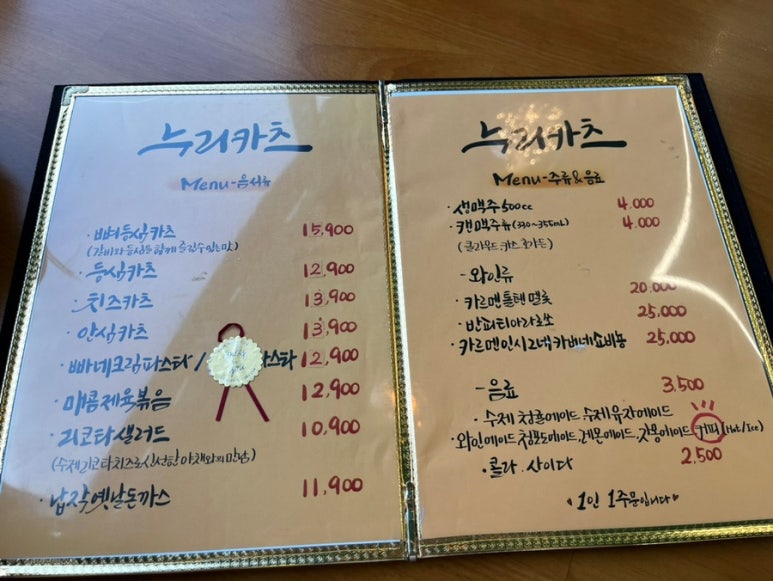 누리카츠
Menu-음식류
· 뼈등심카츠 15,900
(갈비와 등심을 함께 즐길수있는맛)
· 등심카츠 12,900
· 치즈카츠 13,900
· 안심카츠 13,900
· 빠네크림파스타 / 스타 12,900
· 매콤제육볶음 12,900
· 리코타샐러드 10,900
(수제리코타치즈로신선한 야채와의 만남)
· 납작옛날돈까스 11,900
누리카츠
Menu-주류&음료
· 생맥주500cc 4,000
· 캔맥주류(330~355ml) 4,000
- 와인류
· 카르멘톨텐멜롯 20,000
· 반피티아라로쏘 25,000
· 카르멘인시그니쳐카버네쇼비뇽 25,000
- 음료 3,500
· 수제 청귤에이드, 수제유자에이드
· 와인에이드, 청포도에이드, 레몬에이드, 자몽에이드, 커피(Hot/Ice)
· 콜라. 사이다 2,500
♡ 1인 1주문입니다 ♡